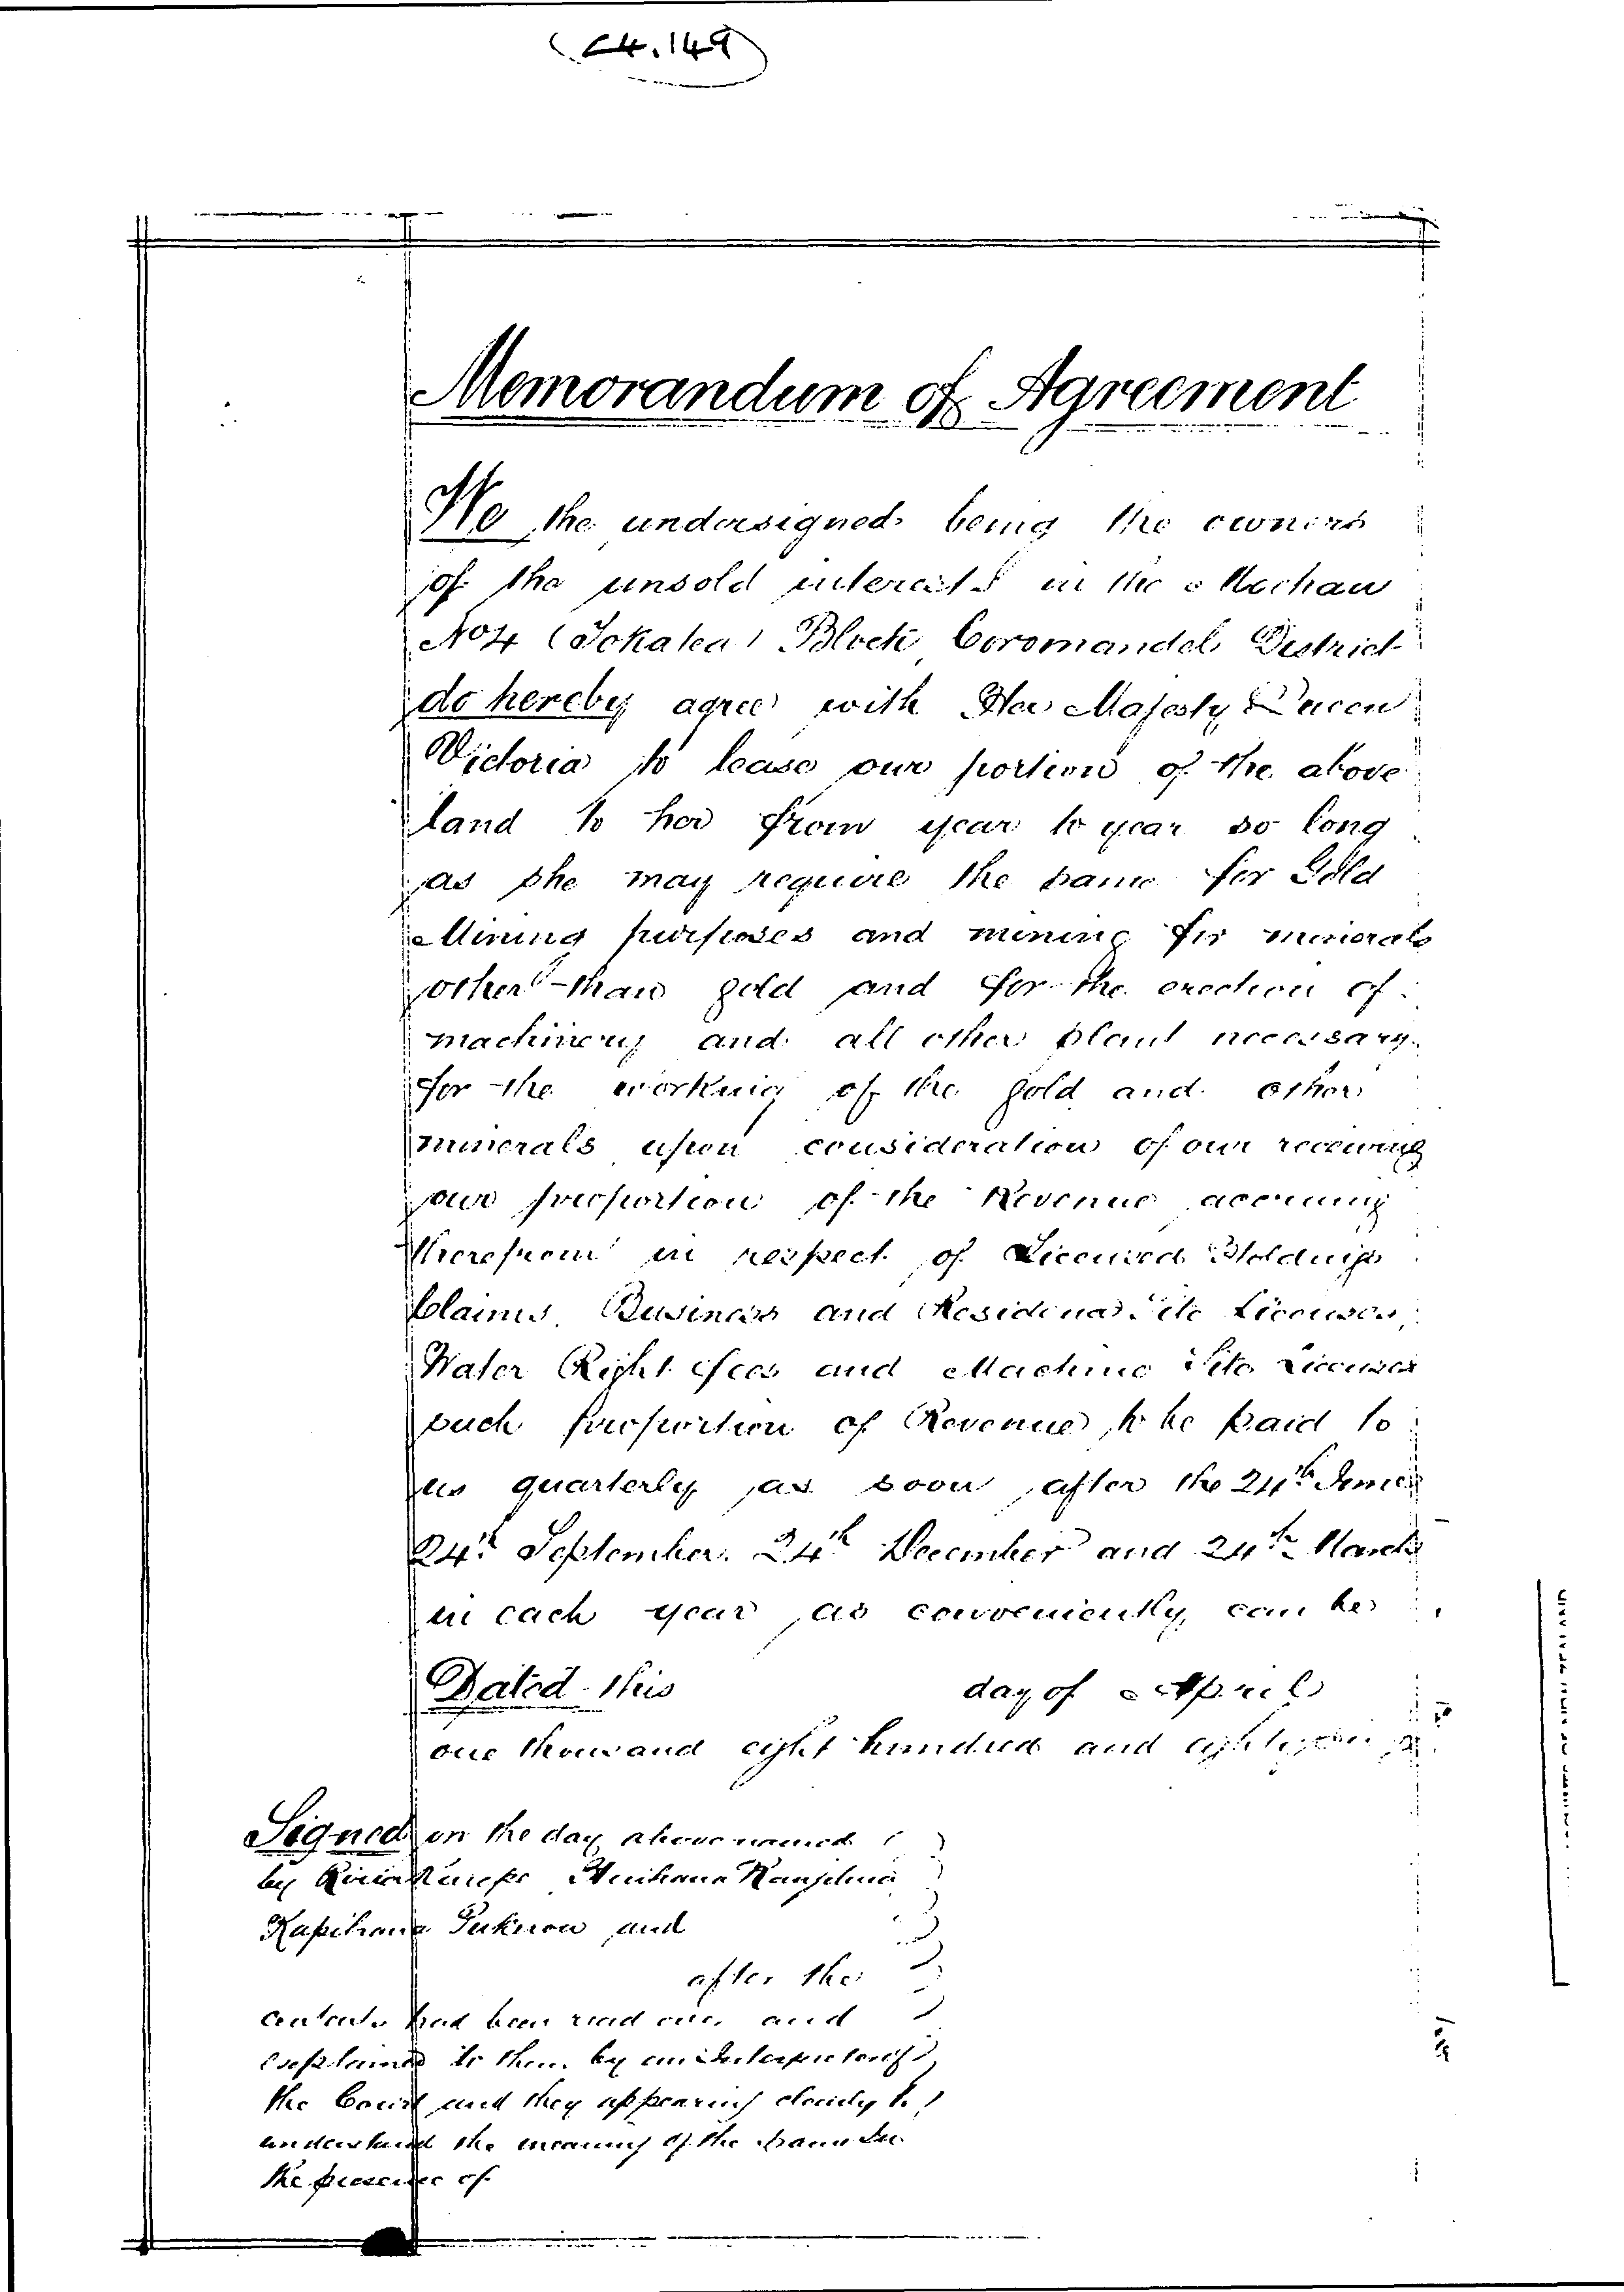 (C4.149)
Memorandum of Agreement
We the undersigned being the owners
of the unsold interests in the Mochau
No 4 (Tokatea) Block Coromandel District
do hereby agree with Her Majesty Queen
Victoria to lease our portion of the above
land to her from year to year so long
as she may require the same for Gold
Mining purposes and mining for minerals
other than gold and for the erection of
machinery and all other plant necessary
for the working of the gold and other
minerals upon consideration of our receiving
our proportion of the Revenue accruing
therefrom in respect of Licensed Holdings
Claims Business and Residence Site Licenses,
Water Right fees and Machine Site Licenses
such proportion of Revenue to be paid to
us quarterly as soon after the 24th June
24th September 24th December and 24th March
in each year as conveniently can be
Dated this day of April
one thousand eight hundred and eighty
Signed on the day above named
by
and
after the
contents had been read over and
explained to them by an Interpreter of
the Court and they appearing clearly to
understand the meaning of the same In
the presence of